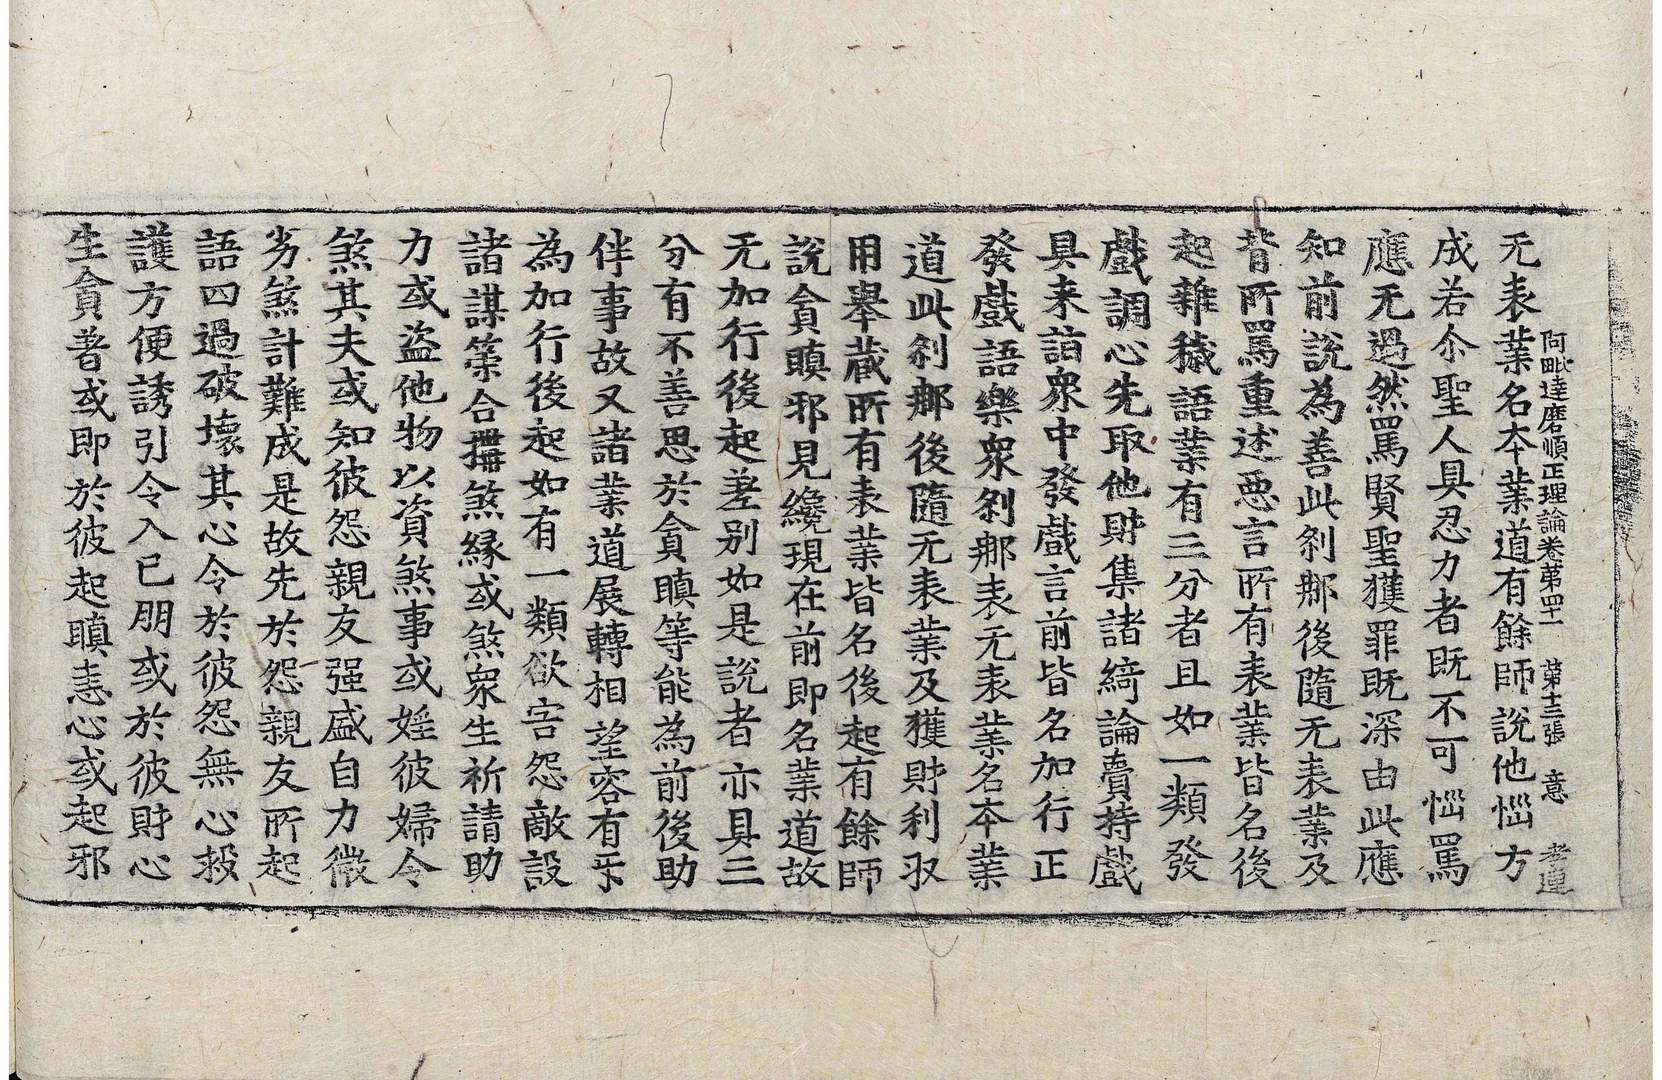 阿毗達磨順正理論卷第四十一 第十三張 意 孝道
无表業名本業道有餘師說他惱方
成若尒聖人具忍力者既不可惱罵
應无過然罵賢聖獲罪既深由此應
知前說為善此刹那後隨无表業及
背所罵重述惡言所有表業皆名後
起雜穢語業有三分者且如一類發
戲調心先取他財集諸綺論賣持戲
具来詣衆中發戲言前皆名加行正
發戲語樂衆刹那表无表業名本業
道此刹那後隨无表業及獲財利収
用舉藏所有表業皆名後起有餘師
說貪瞋邪見纔現在前即名業道故
无加行後起差别如是說者亦具三
分有不善思於貪瞋等能為前後助
伴事故又諸業道展轉相望容有㸦
為加行後起如有一類欲害怨敵設
諸謀䇿合搆煞緣或煞衆生祈請助
力或盜他物以資煞事或婬彼婦令
煞其夫或知彼怨親友强盛自力微
劣煞計難成是故先於怨親友所起
語四過破壞其心令於彼怨無心救
護方便誘引令入已朋或於彼財心
生貪著或即於彼起瞋恚心或起邪